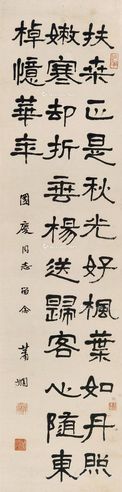 扶桒正是秋光好楓葉如丹照
嫩寒却折垂楊送歸客心隨東
棹憶華年
國慶同志留念
蕭嫻